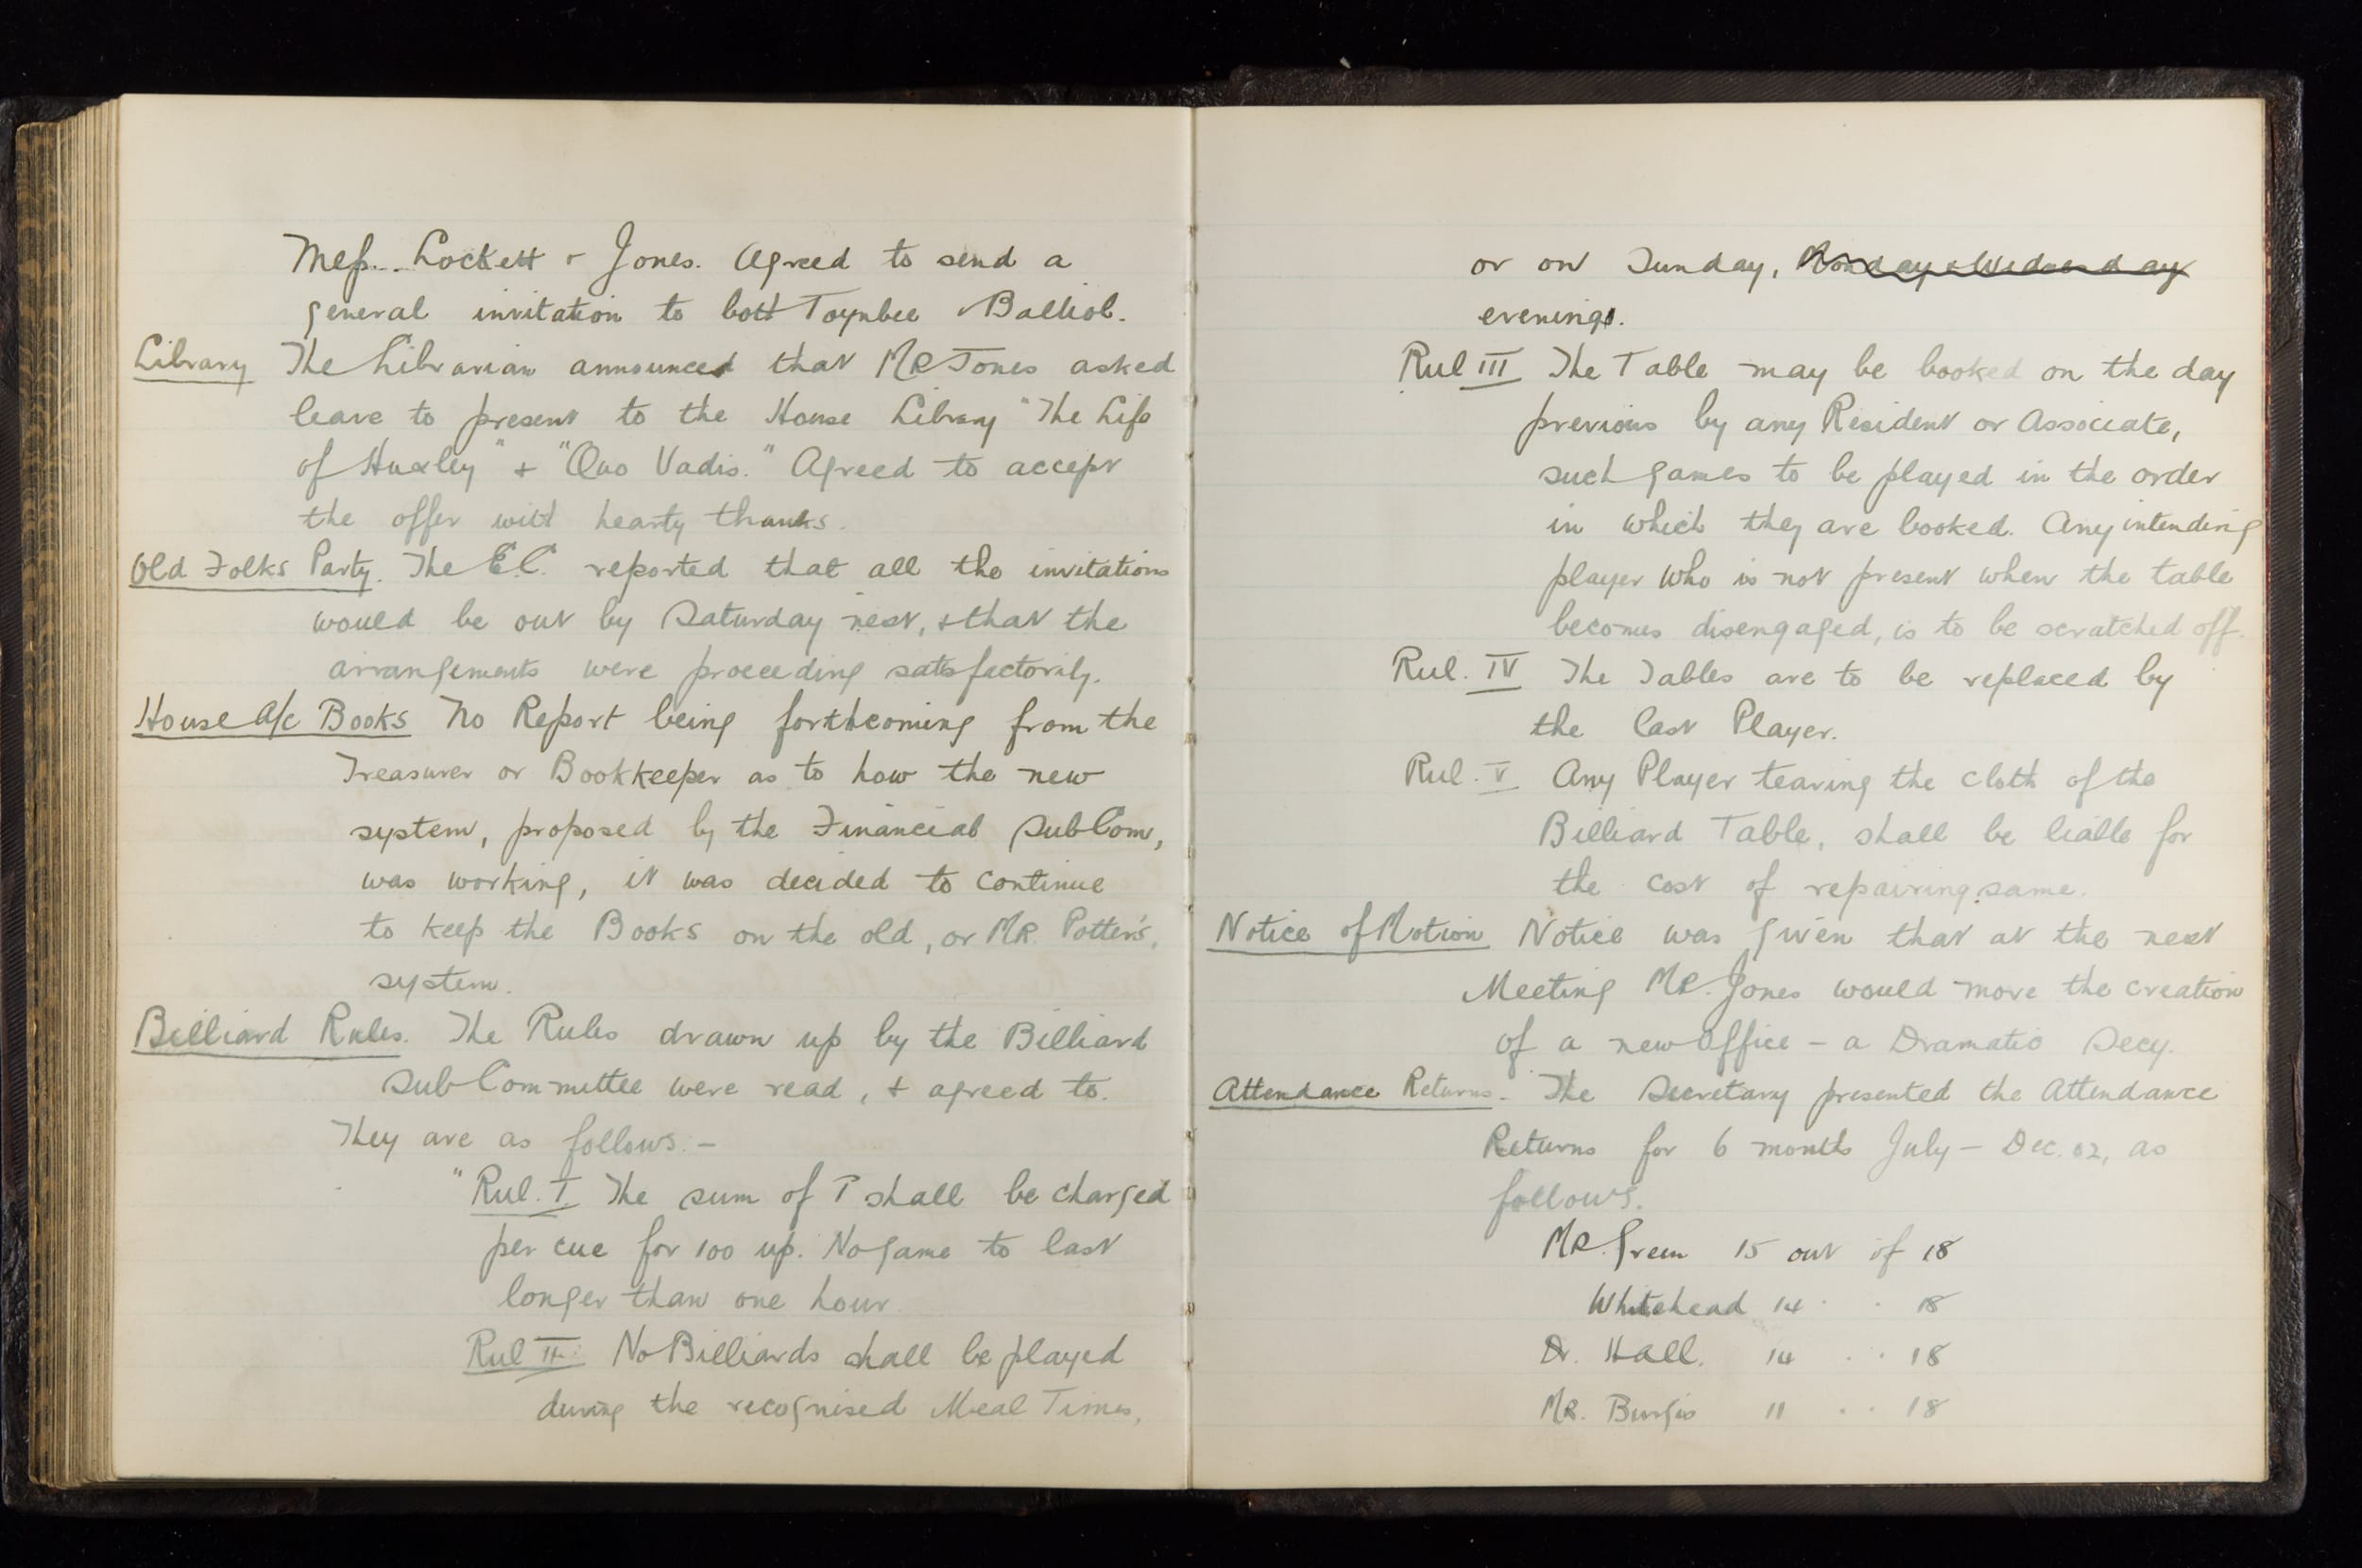 Mess. Lockett & Jones. Agreed to send a
general invitation to both Toynbee & Balliol.
Library The Librarian announced that Mr Jones asked
leave to present to the House Library "The Life
of Huxley" & "Quo Vadis." Agreed to accept
the offer with hearty thanks.
Old Folks Party. The E.C. reported that all the invitations
would be out by Saturday next, & that the
arrangements were proceeding satisfactorily.
House A/c Books No Report being forthcoming from the
Treasurer or Bookkeeper as to how the new
system, proposed by the Financial SubCom,
was working, it was decided to continue
to keep the Books on the old, or Mr. Potter's,
system.
Billiard Rules. The Rules drawn up by the Billiard
SubCommittee were read, & agreed to.
They are as follows:-
"Rul. I. The sum of 1d shall be charged
per cue for 100 up. No game to last
longer than one hour.
Rul II. No Billiards shall be played
during the recognised Meal Times,
or on Sunday, Monday & Wednesday
evenings.
Rul III The Table may be booked on the day
previous by any Resident or Associate,
such games to be played in the order
in which they are booked. Any intending
player who is not present when the table
becomes disengaged, is to be scratched off.
Rul. IV The Tables are to be replaced by
the last Player.
Rul. V Any Player tearing the cloth of the
Billiard Table, shall be liable for
the cost of repairing same.
Notice of Motion Notice was given that at the next
Meeting Mr. Jones would move the creation
of a new Office - a Dramatic Secy.
Attendance Returns. The Secretary presented the Attendance
Returns for 6 months July - Dec. 02, as
follows.
Mr. Green 15 out of 18
Whitehead 14 . . 18
Dr. Hall. 14 . . 18
Mr. Burgis 11 . . 18